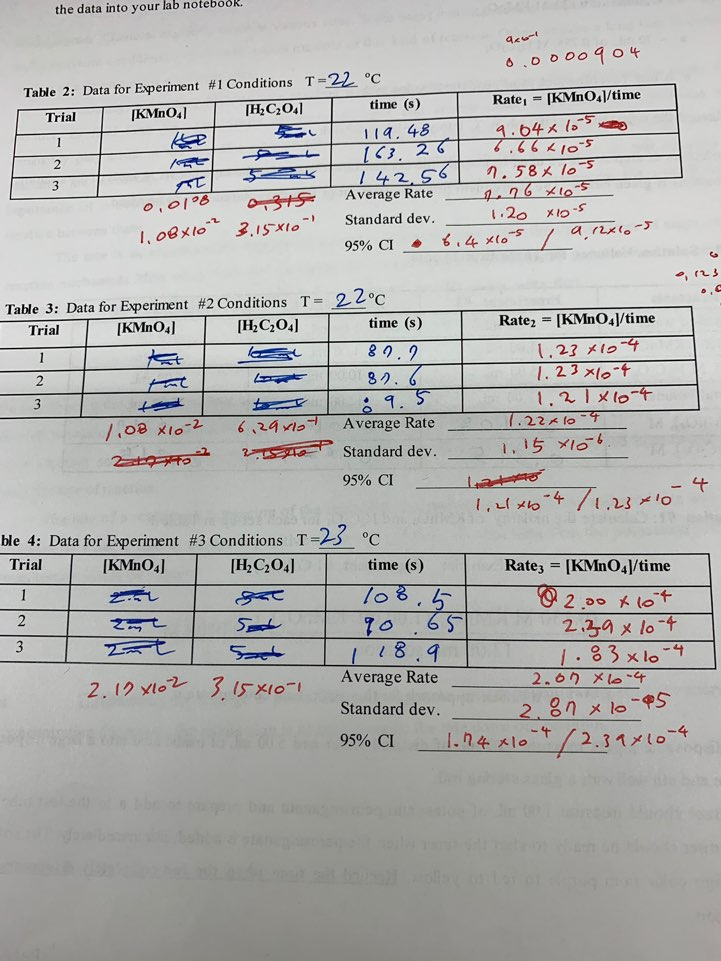 the data into your lab notebook.
0.0000904
Table 2: Data for Experiment #1 Conditions T = 22 °C
Trial [KMnO4] [H2C2O4] time (s) Rate1 = [KMnO4]/time
1 119.48 9.04 x 10^-5
2 163.26 6.66 x 10^-5
3 142.56 7.58 x 10^-5
0.0108 0.315 Average Rate 7.76 x10^-5
1.08x10^-2 3.15x10^-1 Standard dev. 1.20 x10^-5
95% CI 6.4 x10^-5 / 9.12x10^-5
Table 3: Data for Experiment #2 Conditions T = 22 °C
Trial [KMnO4] [H2C2O4] time (s) Rate2 = [KMnO4]/time
1 87.7 1.23 x10^-4
2 87.6 1.23 x10^-4
3 89.5 1.21 x10^-4
1.08 x10^-2 6.29x10^-1 Average Rate 1.22x10^-4
Standard dev. 1.15 x10^-6
95% CI
1.21 x10^-4 / 1.23 x10^-4
ble 4: Data for Experiment #3 Conditions T = 23 °C
Trial [KMnO4] [H2C2O4] time (s) Rate3 = [KMnO4]/time
1 108.5 2.00 x 10^-4
2 90.65 2.39 x 10^-4
3 118.9 1.83 x 10^-4
2.17 x10^-2 3.15x10^-1 Average Rate 2.07 x10^-4
Standard dev. 2.87 x 10^-5
95% CI 1.74 x10^-4 / 2.39x10^-4